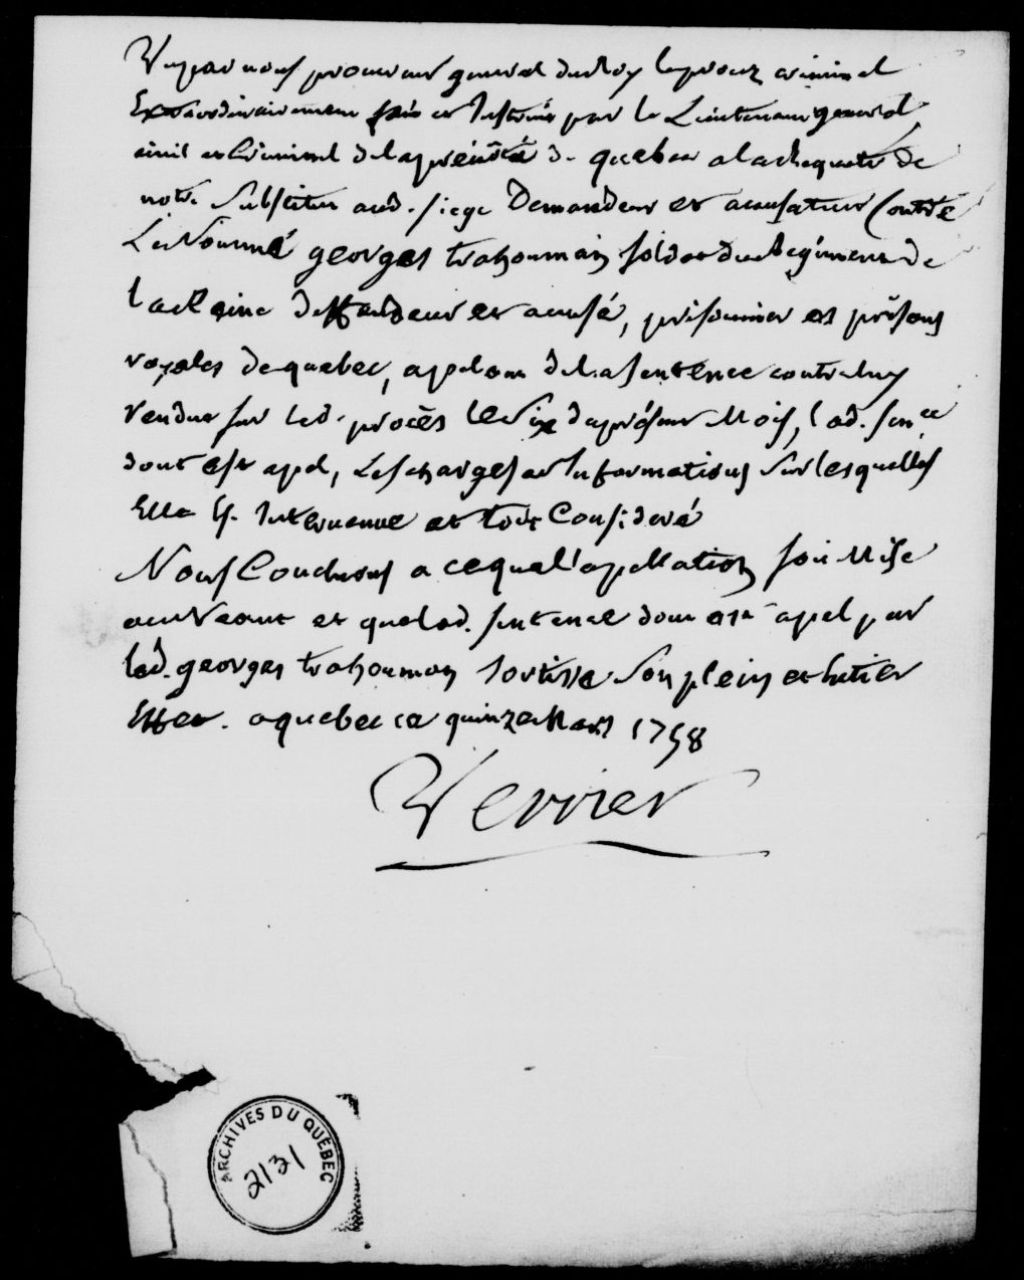 Vu par nous procureur general du Roy le procez criminel
Extraordinairement fait et Instruit par le Lieutenant general
civil et Criminel de la prévôté de quebec a la Requete de
notre Substitut aud. siege Demandeur et accusateur Contre
Le Nommé georges trahouman soldat du Regiment de
la Reine Deffendeur et accusé, prisonnier es prisons
royales de quebec, apelant de la sentence contre luy
rendue sur led. procès le six du présent Mois, lad. sence
dont est apel, Les charges et Informations sur lesquelles
Elle Est Intervenue et tout Consideré
Nous Concluons a ce que l'apellation soit Mise
au Neant et que lad. sentence dont est apel par
led. georges trahouman sortisse son plein et Entier
Effet. a quebec ce quinze Mars 1758
Verrier
ARCHIVES DU QUÉBEC
2131